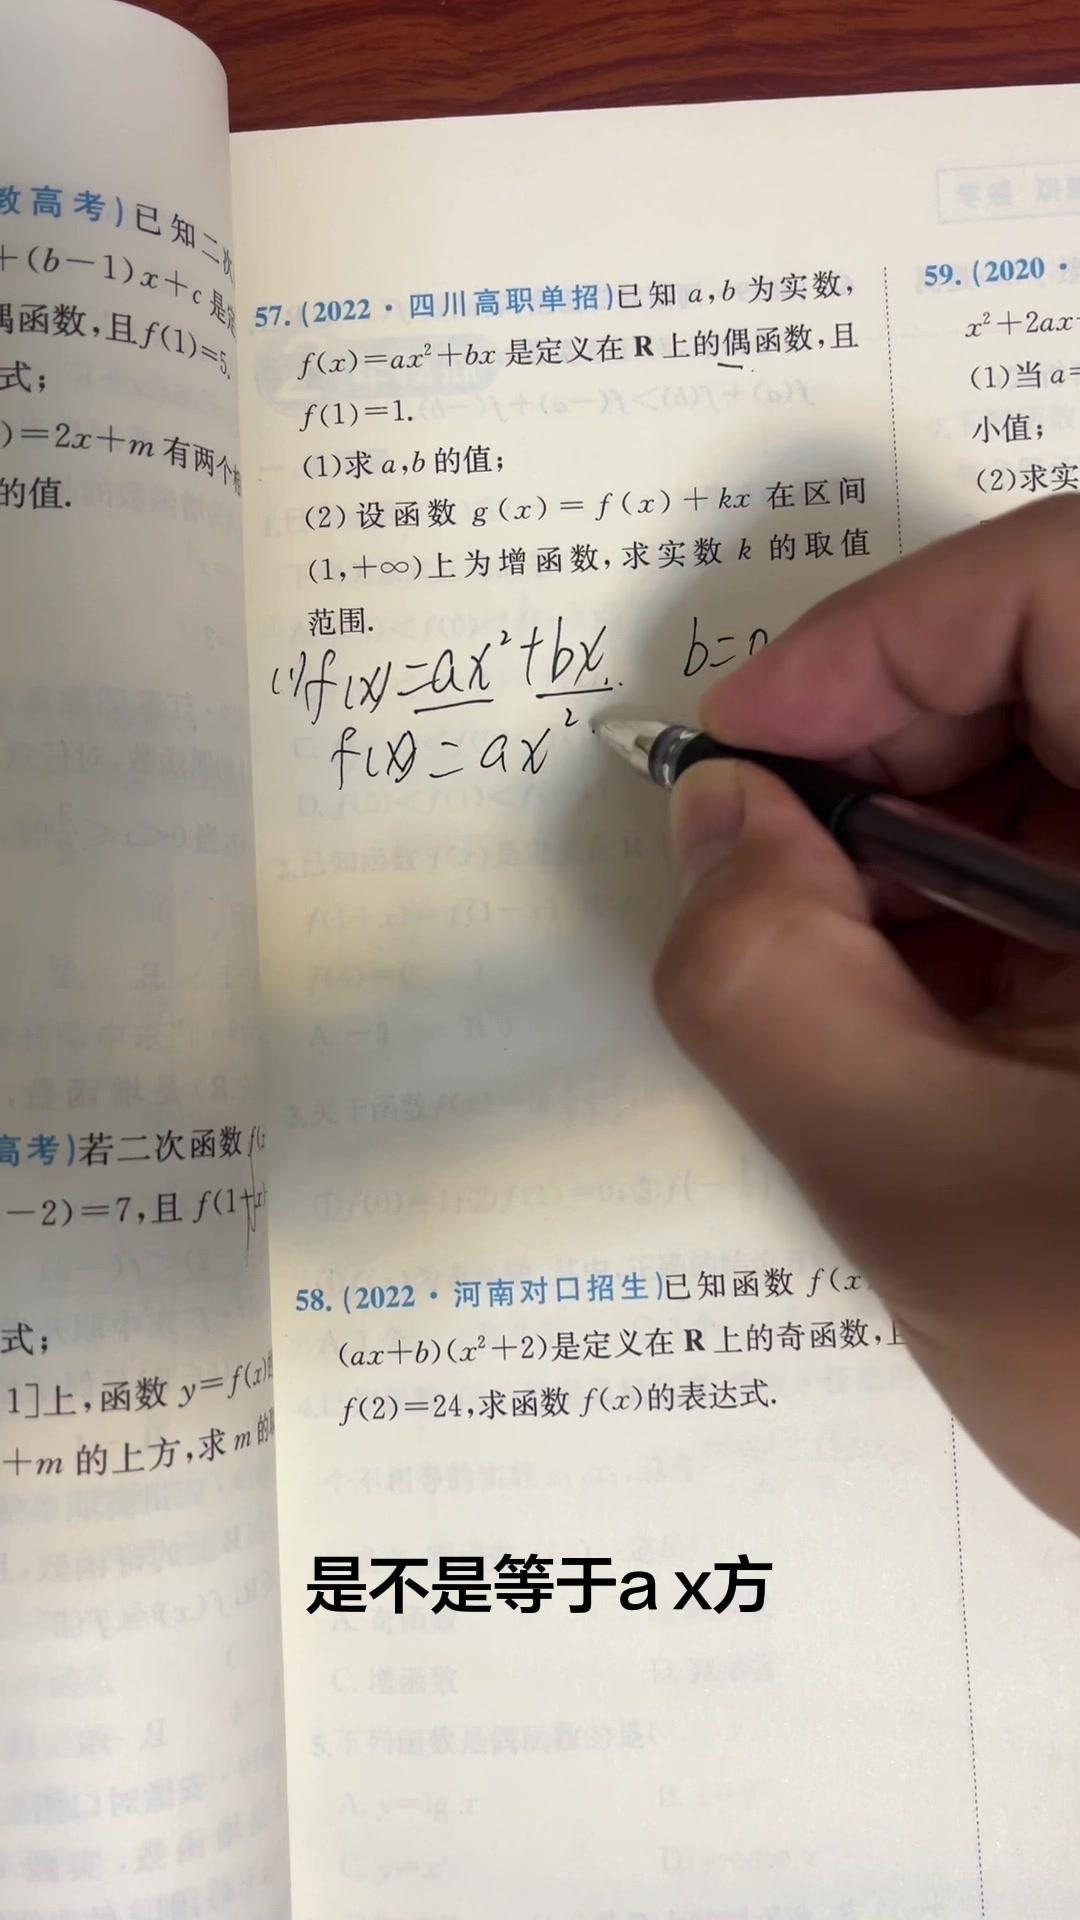 教高考)已知二次
+(b-1)x+c是定
偶函数,且f(1)=5.
式;
)=2x+m有两个相
的值.
高考)若二次函数f(x
-2)=7,且f(1+x)
式;
1]上,函数y=f(x)的
+m的上方,求m的取
57.(2022·四川高职单招)已知a,b为实数,
f(x)=ax²+bx是定义在R上的偶函数,且
f(1)=1.
(1)求a,b的值;
(2)设函数g(x)=f(x)+kx在区间
(1,+∞)上为增函数,求实数k的取值
范围.
(1)f(x)=ax²+bx. b=0
f(x)=ax²
58.(2022·河南对口招生)已知函数f(x)
(ax+b)(x²+2)是定义在R上的奇函数,且
f(2)=24,求函数f(x)的表达式.
59.(2020·
x²+2ax+
(1)当a=
小值;
(2)求实
是不是等于a x方